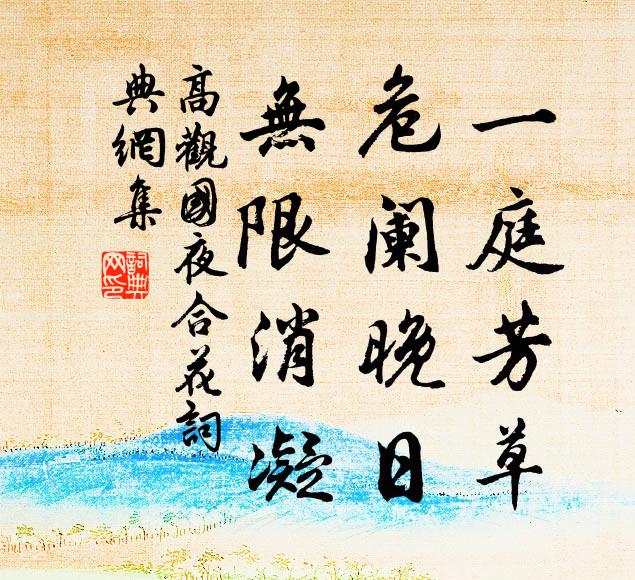 一庭芳草
危阑晚日
無限消凝
高觀國夜合花詞
典網集
詞典網印